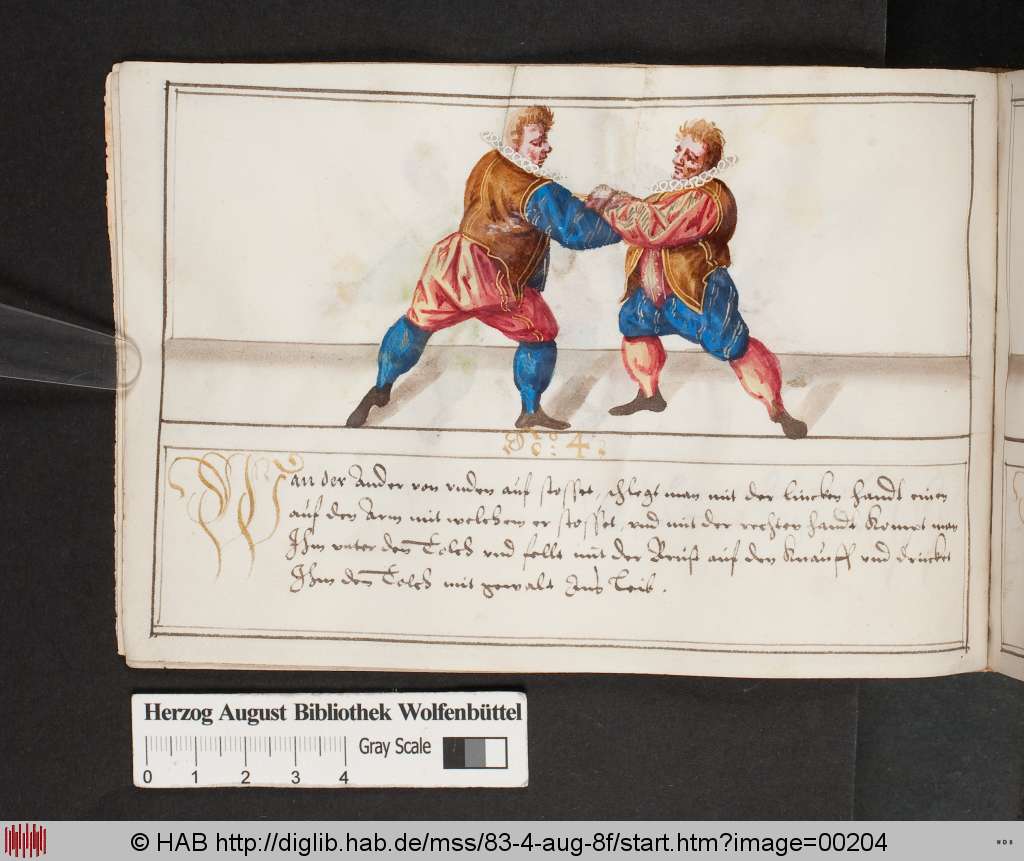 No: 4:
Wan der Ander von vnden auf stosset, schlegt man mit der lincken handt einen
auf den Arm mit welchem er stosset, vnd mit der rechten handt kompt man
Ihm vnter den Tolch vnd fellt mit der Brust auf den knauff vnd drucket
Ihm den Tolch mit gewalt Ins Leib.
Herzog August Bibliothek Wolfenbüttel
Gray Scale
0 1 2 3 4
© HAB http://diglib.hab.de/mss/83-4-aug-8f/start.htm?image=00204